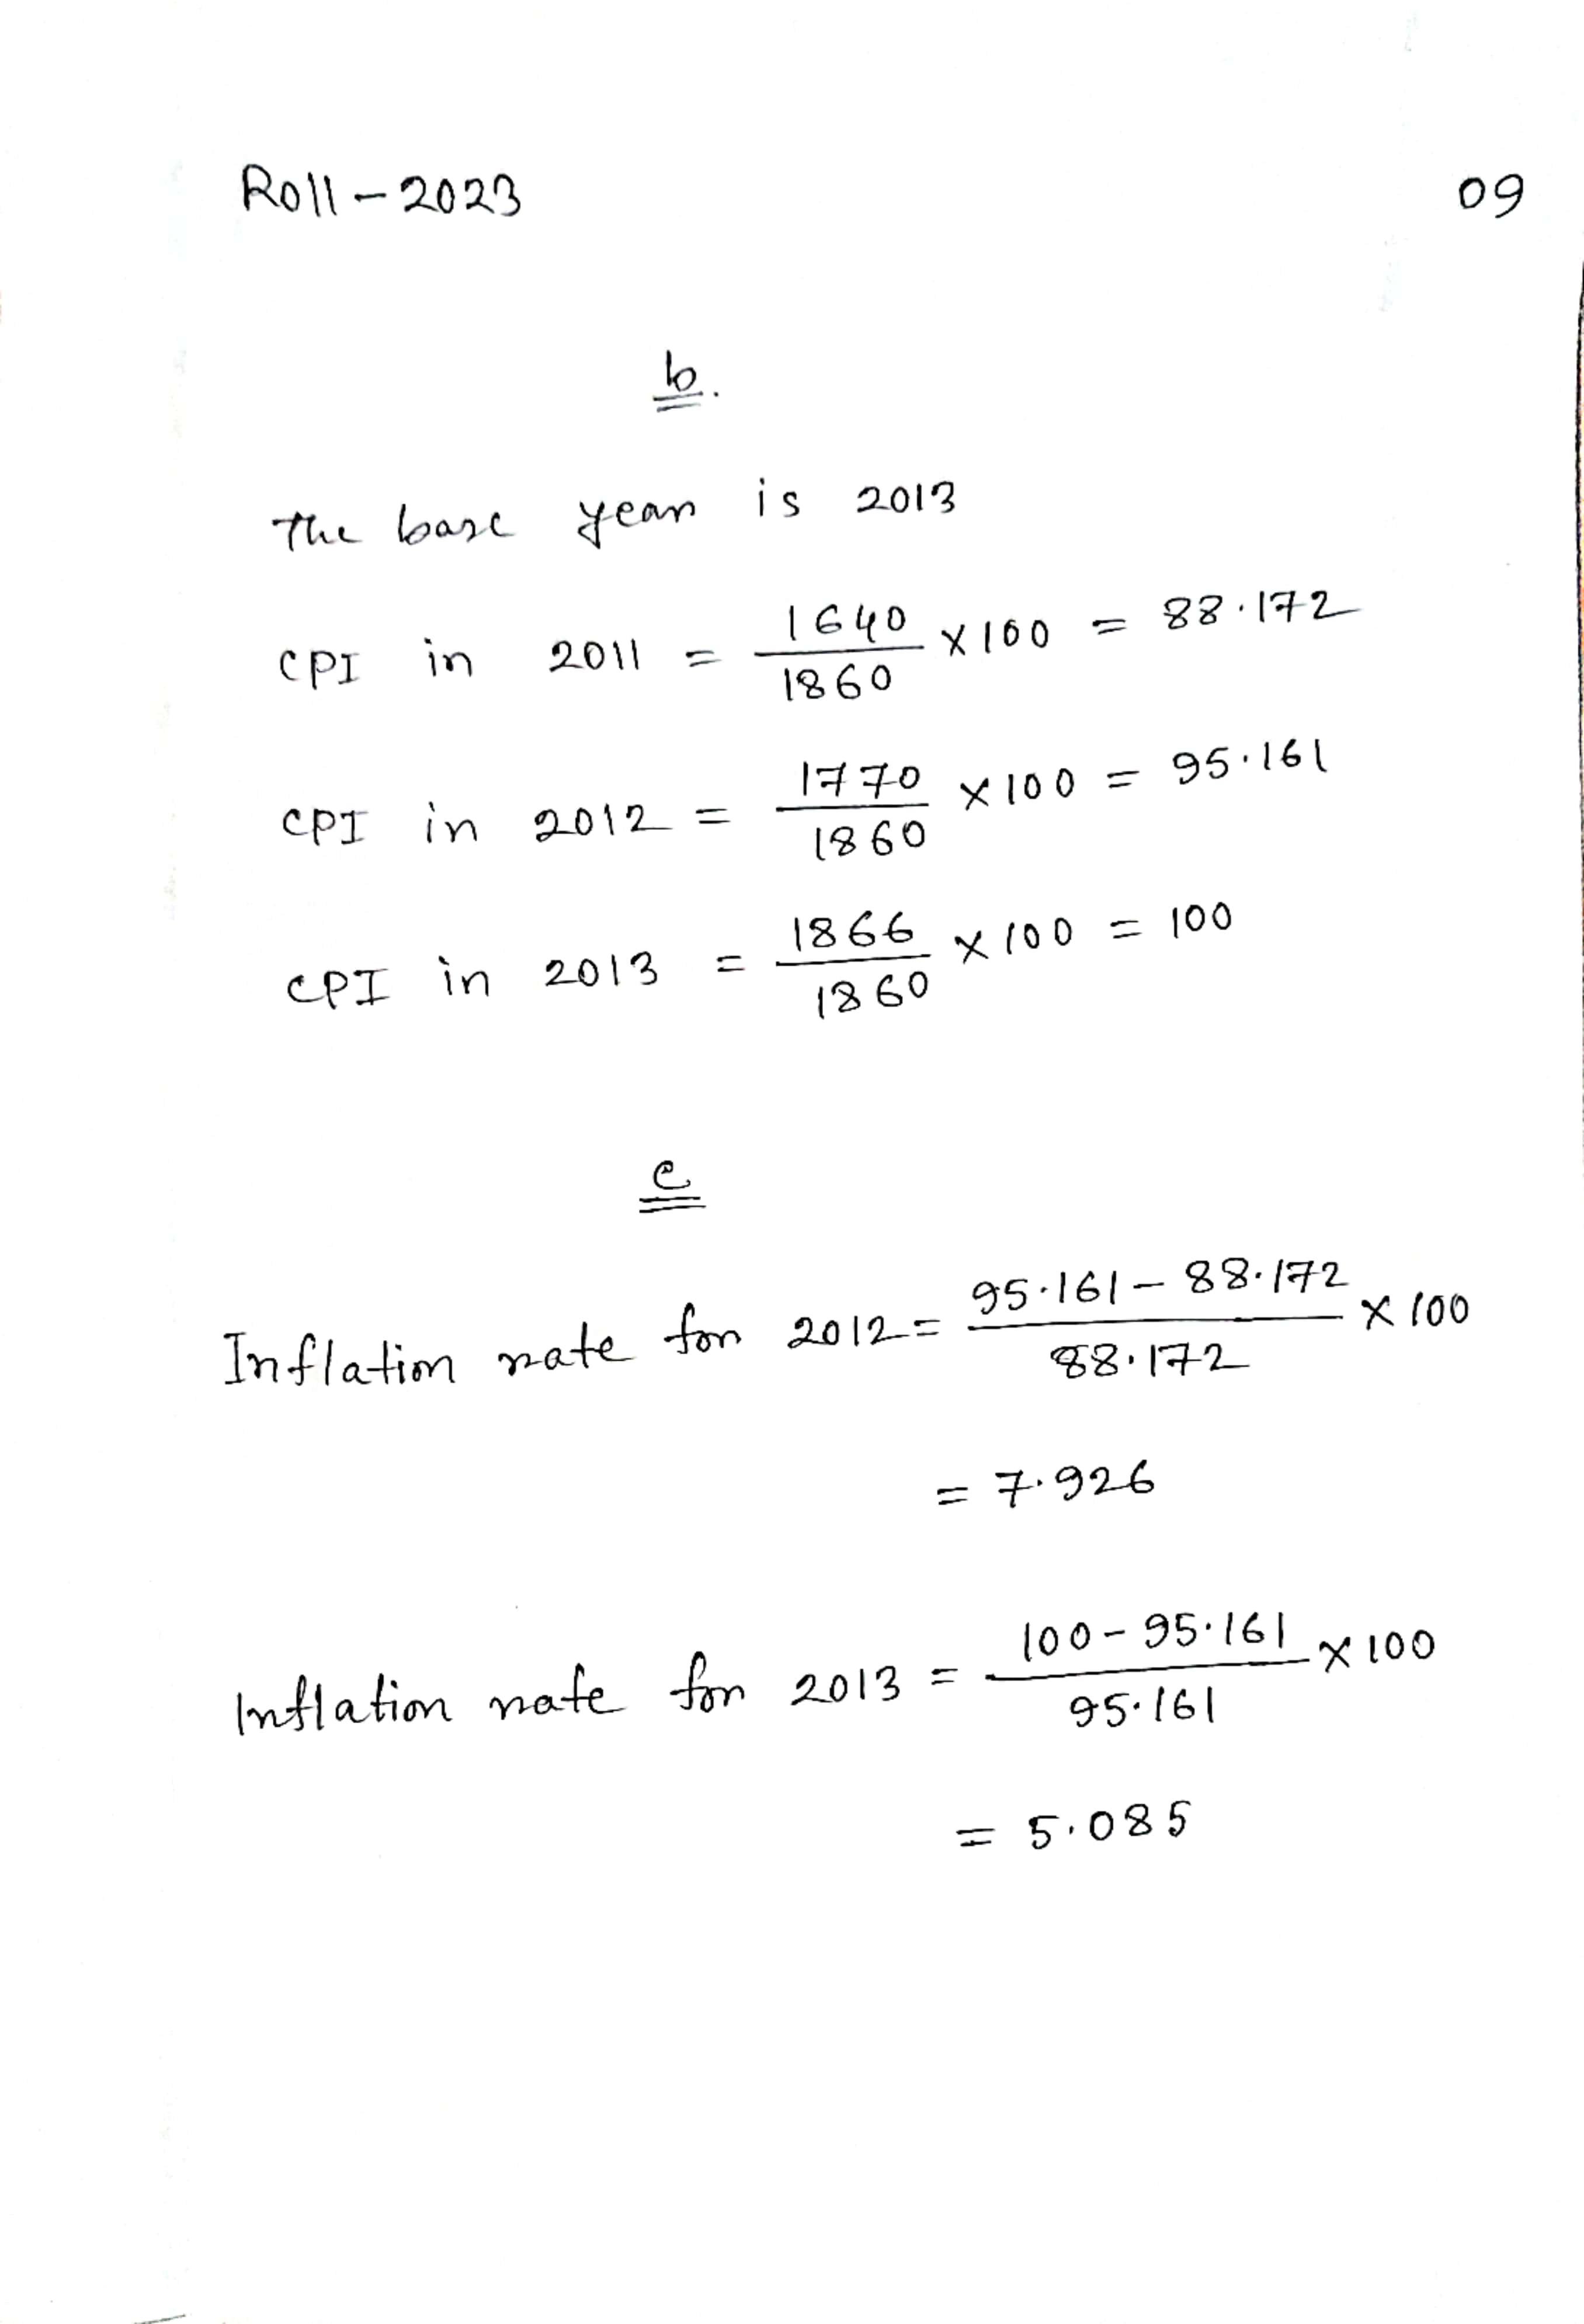 Roll-2023 09
b.
The base year is 2013
CPI in 2011 = 1640/1860 × 100 = 88.172
CPI in 2012 = 1770/1860 × 100 = 95.161
CPI in 2013 = 1866/1860 × 100 = 100
c
Inflation rate for 2012 = 95.161 - 88.172/88.172 × 100
= 7.926
Inflation rate for 2013 = 100 - 95.161/95.161 × 100
= 5.085